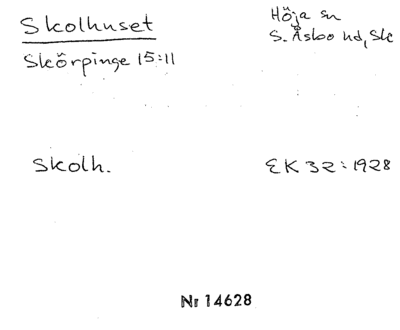 Skolhuset
Skörpinge 15:11
Höja sn
S. Åsbo hd, Sk
Skolh.
EK 32:1928
Nr 14628